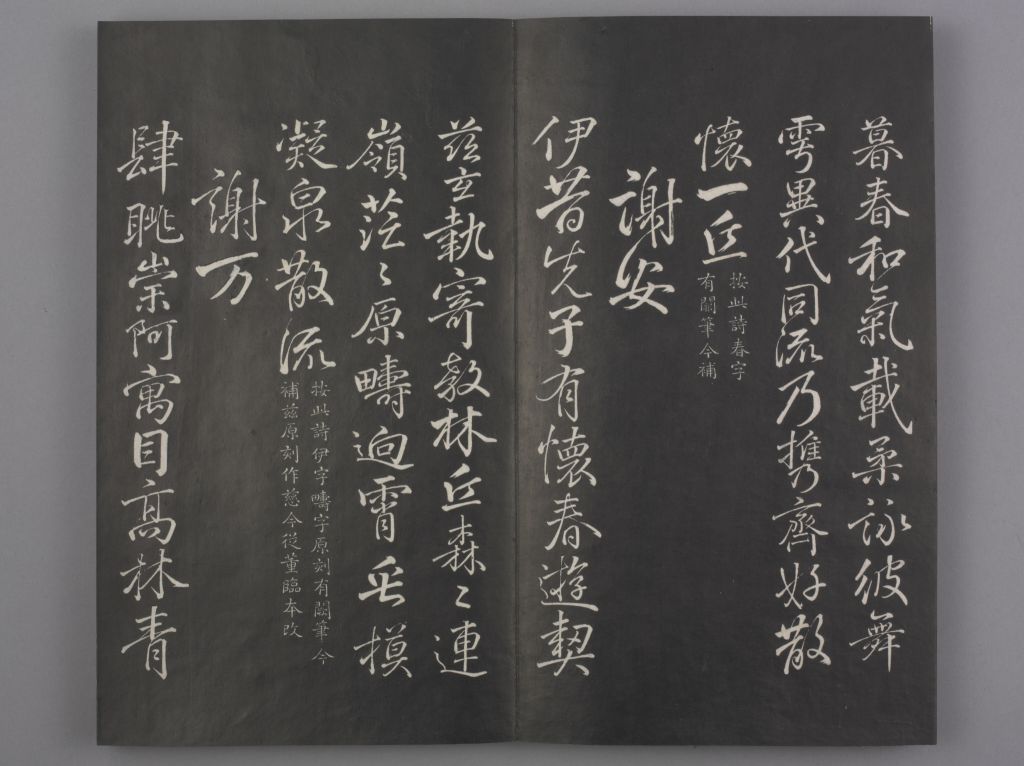 暮春和氣載柔詠彼舞
雩異代同流乃携齊好散
懷一丘
按此詩春字
有闕筆今補
謝安
伊昔先子有懷春遊契
茲言執寄敖林丘森〻連
嶺茫〻原疇逈霄垂幙
凝泉散流
按此詩伊字疇字原刻有闕筆今
補茲原刻作慈今從董臨本改
謝万
肆眺崇阿寓目高林青